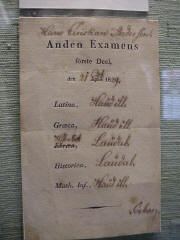 Hans Christian Andersen
Anden Examens
förste Deel,
den 21 1829.
Latina, Haud ill.
Græca, Haud ill.
Hebræa, Laudab.
Historica, Laudab.
Math. Inf., Haud ill.